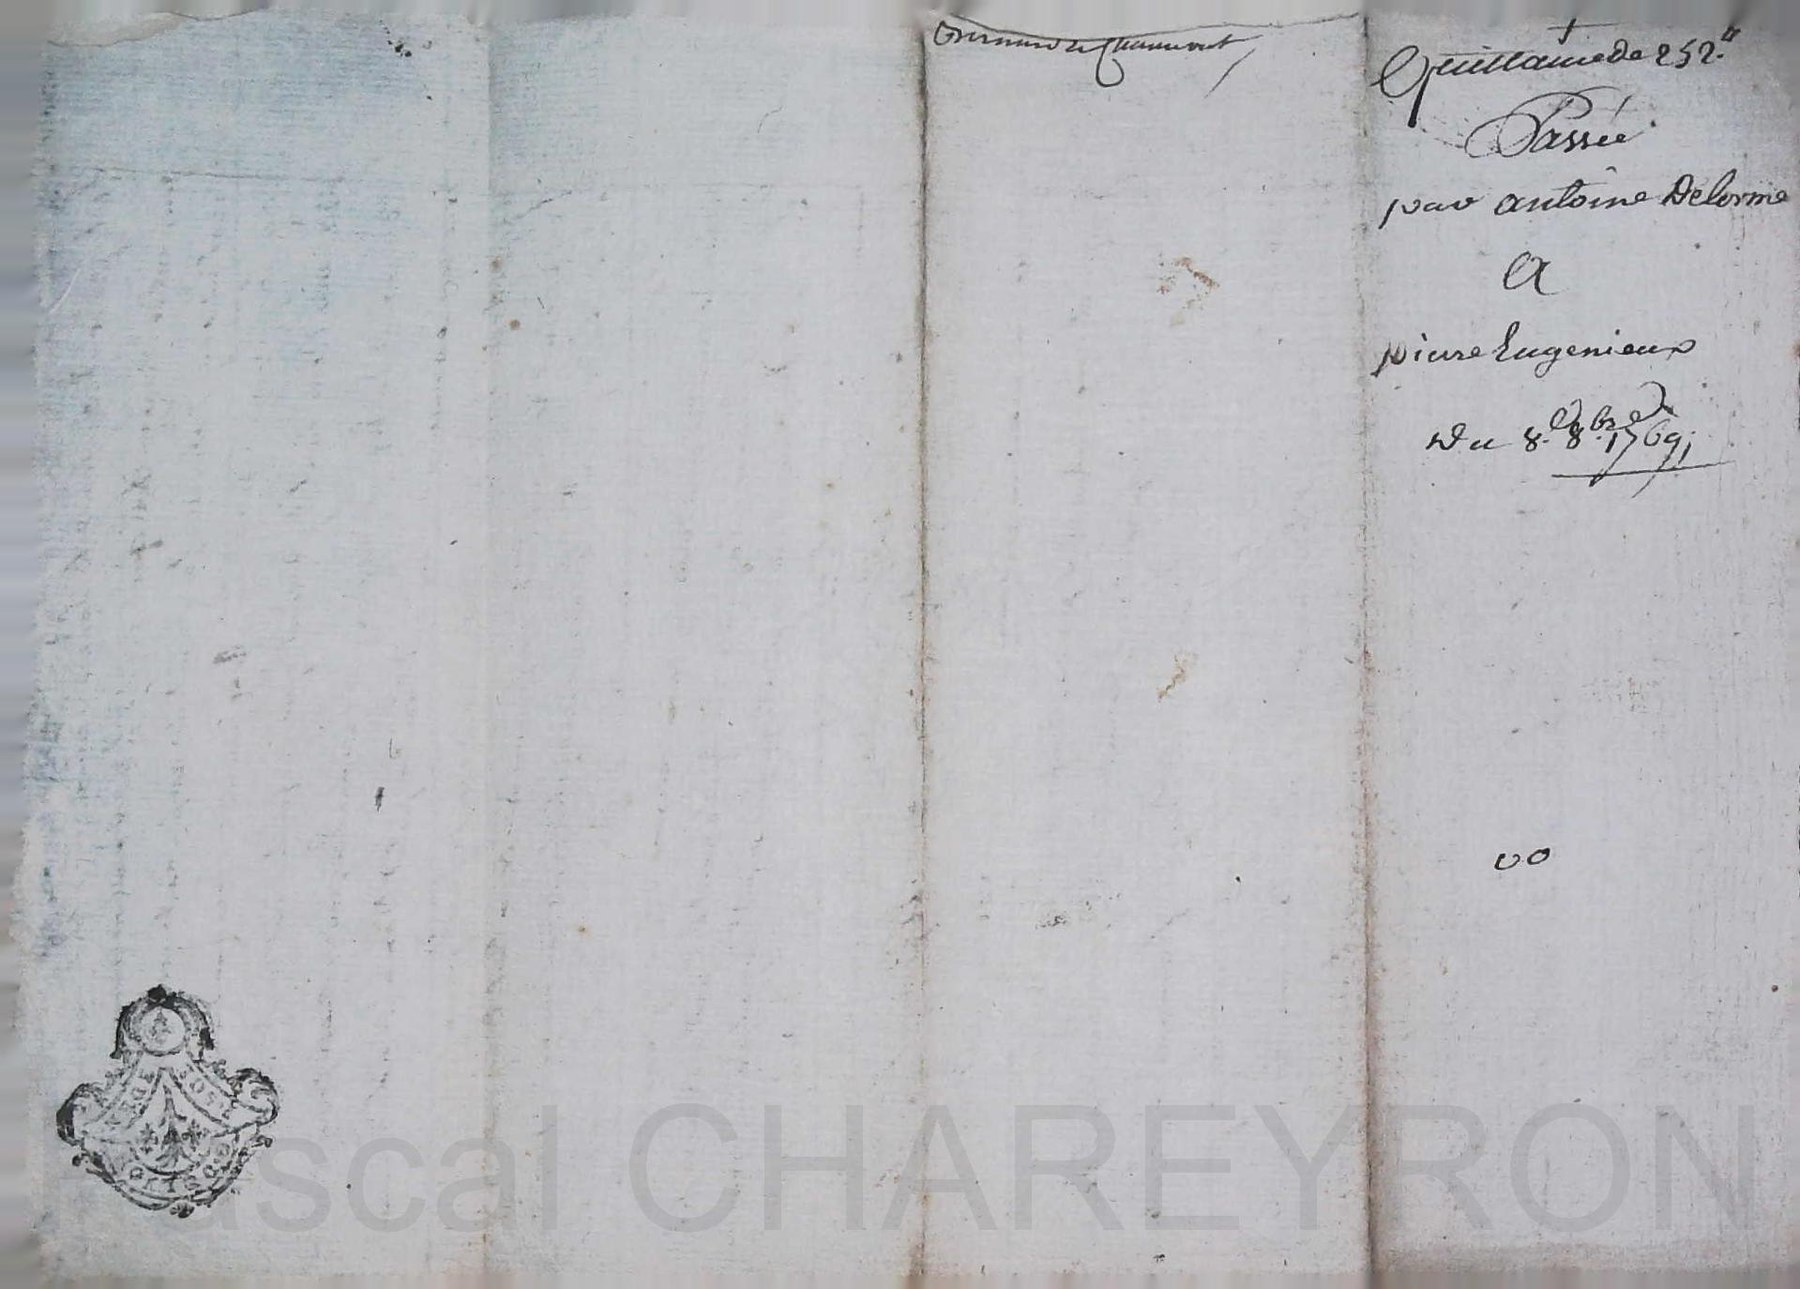 Quittance de 252.ᵗᵗ
Passée
par antoine Delorme
a
pierre Eugenieux
Du 8. 8.bre 1769,
00
Pascal CHAREYRON